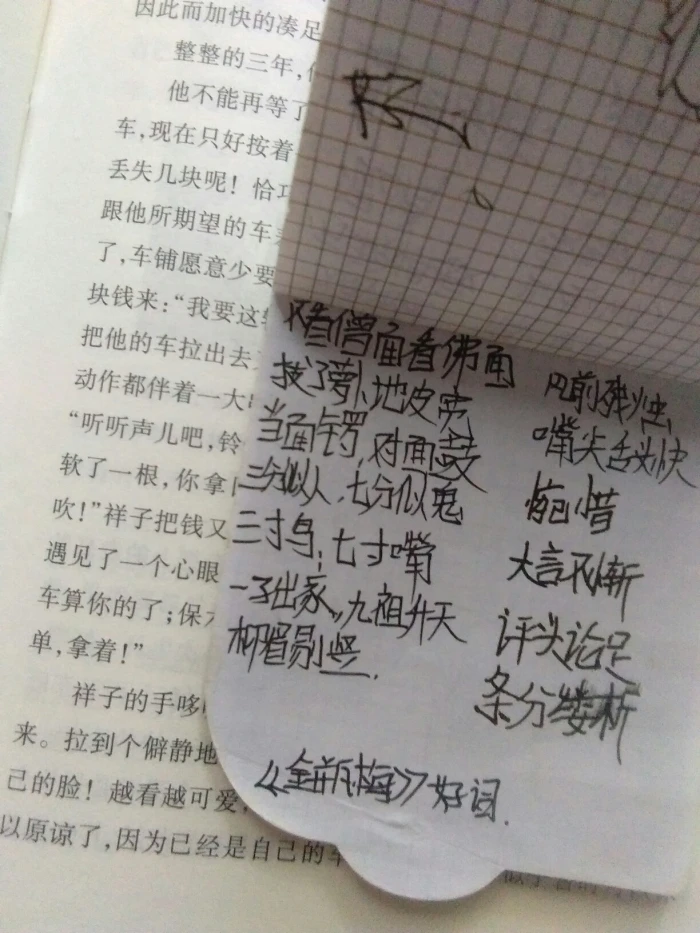 因此而加快的凑足
整整的三年,
他不能再等了
车,现在只好按着
丢失几块呢!恰巧
跟他所期望的车
了,车铺愿意少要
块钱来:“我要这
把他的车拉出去
动作都伴着一大
“听听声儿吧,铃
软了一根,你拿
吹!”祥子把钱又
遇见了一个心眼
车算你的了;保
单,拿着!”
祥子的手哆
来。拉到个僻静地
己的脸!越看越可爱,
以原谅了,因为已经是自己的车
不看僧面看佛面
拔了萝卜地皮宽
当面锣,对面鼓
三分似人,七分似鬼
三寸鸟,七寸嘴
一子出家,九祖升天
柳眉剔竖.
风前残烛
嘴尖舌头快
惋惜
大言不惭
评头论足
条分缕析
《金瓶梅》好词.